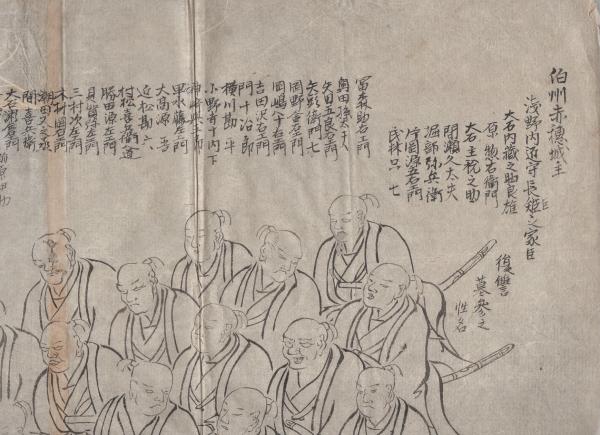 伯州赤穂城主
浅野内匠守長矩之家臣
復讐
墓参之
性名
大石内蔵之助良雄
原惣右衛門
大石主税之助
間瀬久太夫
堀部弥兵衛
片岡源五右門
冨森助右門
奥田孫太夫
矢田五良右門
矢頭右衛門七
岡野金右門
岡嶋八十右門
吉田沢右門
間十治郎
横川勘平
小野寺十内
神崎与五郎
早水藤左門
大高源吾
近松勘六
村松喜兵衛
勝田源左門
貝賀弥左門
三村次左門
木村岡右門
潮田又之丞
間喜兵衛